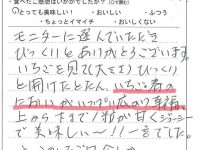 食べたご感想はいかがでしたか？
○とっても美味しい！ ・おいしい ・ふつう
・ちょっとイマイチ ・おいしくない
モニターに選んでいただき
びっくりと ありがとうございます。
いちごを見て(大きさ) びっくり
と開けたとたん、いちごの
においがいっぱい広がり幸福。
上から下まで 1粒が甘くジューシー
で美味しい〜!! 一言でした。